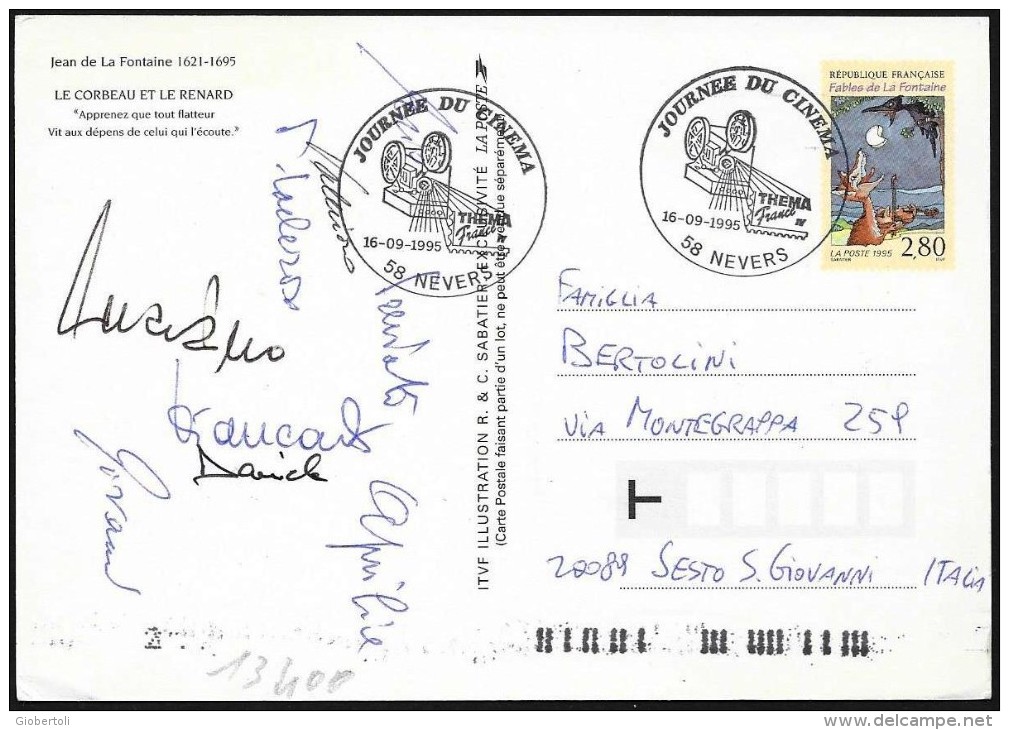 Jean de La Fontaine 1621-1695
LE CORBEAU ET LE RENARD
"Apprenez que tout flatteur
Vit aux dépens de celui qui l'écoute."
Giancarlo
David
Aprilie
13400
ITVF ILLUSTRATION R. & C. SABATIER EXCLUSIVITÉ LA POSTE
(Carte Postale faisant partie d'un lot, ne peut être vendue séparément)
JOURNEE DU CINEMA
THEMA
France
IV
16-09-1995
58 NEVERS
JOURNEE DU CINEMA
THEMA
France
IV
16-09-1995
58 NEVERS
RÉPUBLIQUE FRANÇAISE
Fables de La Fontaine
LA POSTE 1995
2,80
SABATIER
ITVF
FAMIGLIA
BERTOLINI
VIA MONTEGRAPPA 259
T
20089 SESTO S. GIOVANNI ITALIA
Giobertoli
www.delcampe.net